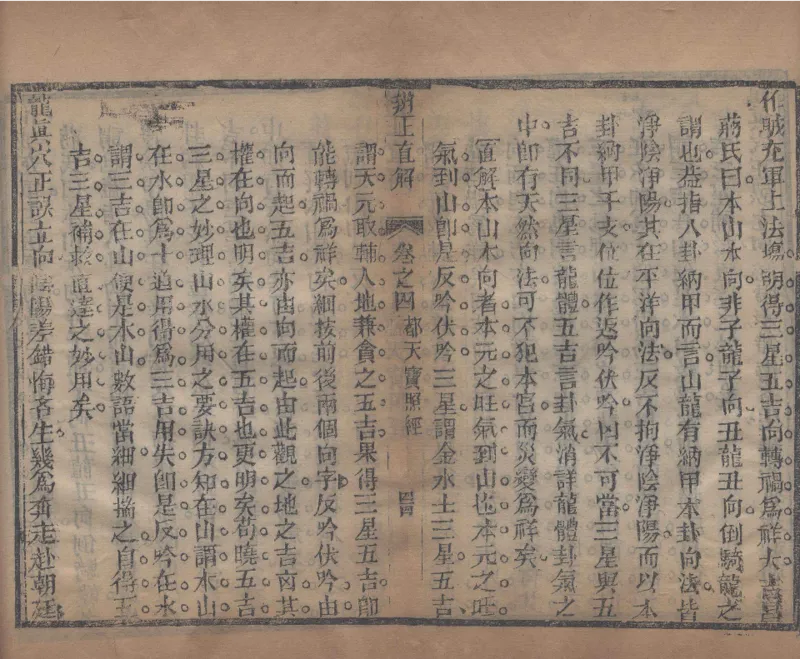 作賊充軍上法場明得三星五吉向轉禍為祥大吉昌
蔣氏曰本山水向非子龍子向丑龍丑向倒騎龍之
謂也葢指八卦納甲而言山龍有納甲本卦向法皆
淨陰淨陽其在平洋向法反不拘淨陰淨陽而以本
卦納甲干支位位作返吟伏吟凶不可當三星與五
吉不同三星言龍體五吉言卦氣消詳龍體卦氣之
中卽有天然向法可不犯本宮而災變為祥矣
直解本山本向者本元之旺氣到山也本元之旺
氣到山卽是反吟伏吟三星謂金水土三星五吉
辨正直解
卷之四
都天寶照經
謂天元取輔人地兼貪之五吉果得三星五吉卽
能轉禍為祥矣細核前後兩個向字反吟伏吟由
向而起五吉亦由向而起由此觀之地之吉凶其
權在向也明矣其權在五吉也更明矣苟曉五吉
三星之妙理山水分用之要訣方知在山謂水山
在水卽為十道用得為三吉用失卽是反吟在水
謂三吉在山便是水山數語當細細揣之自得五
吉三星補救直達之妙用矣
龍眞穴正誤立向陰陽差錯悔吝生幾為奔走赴朝廷